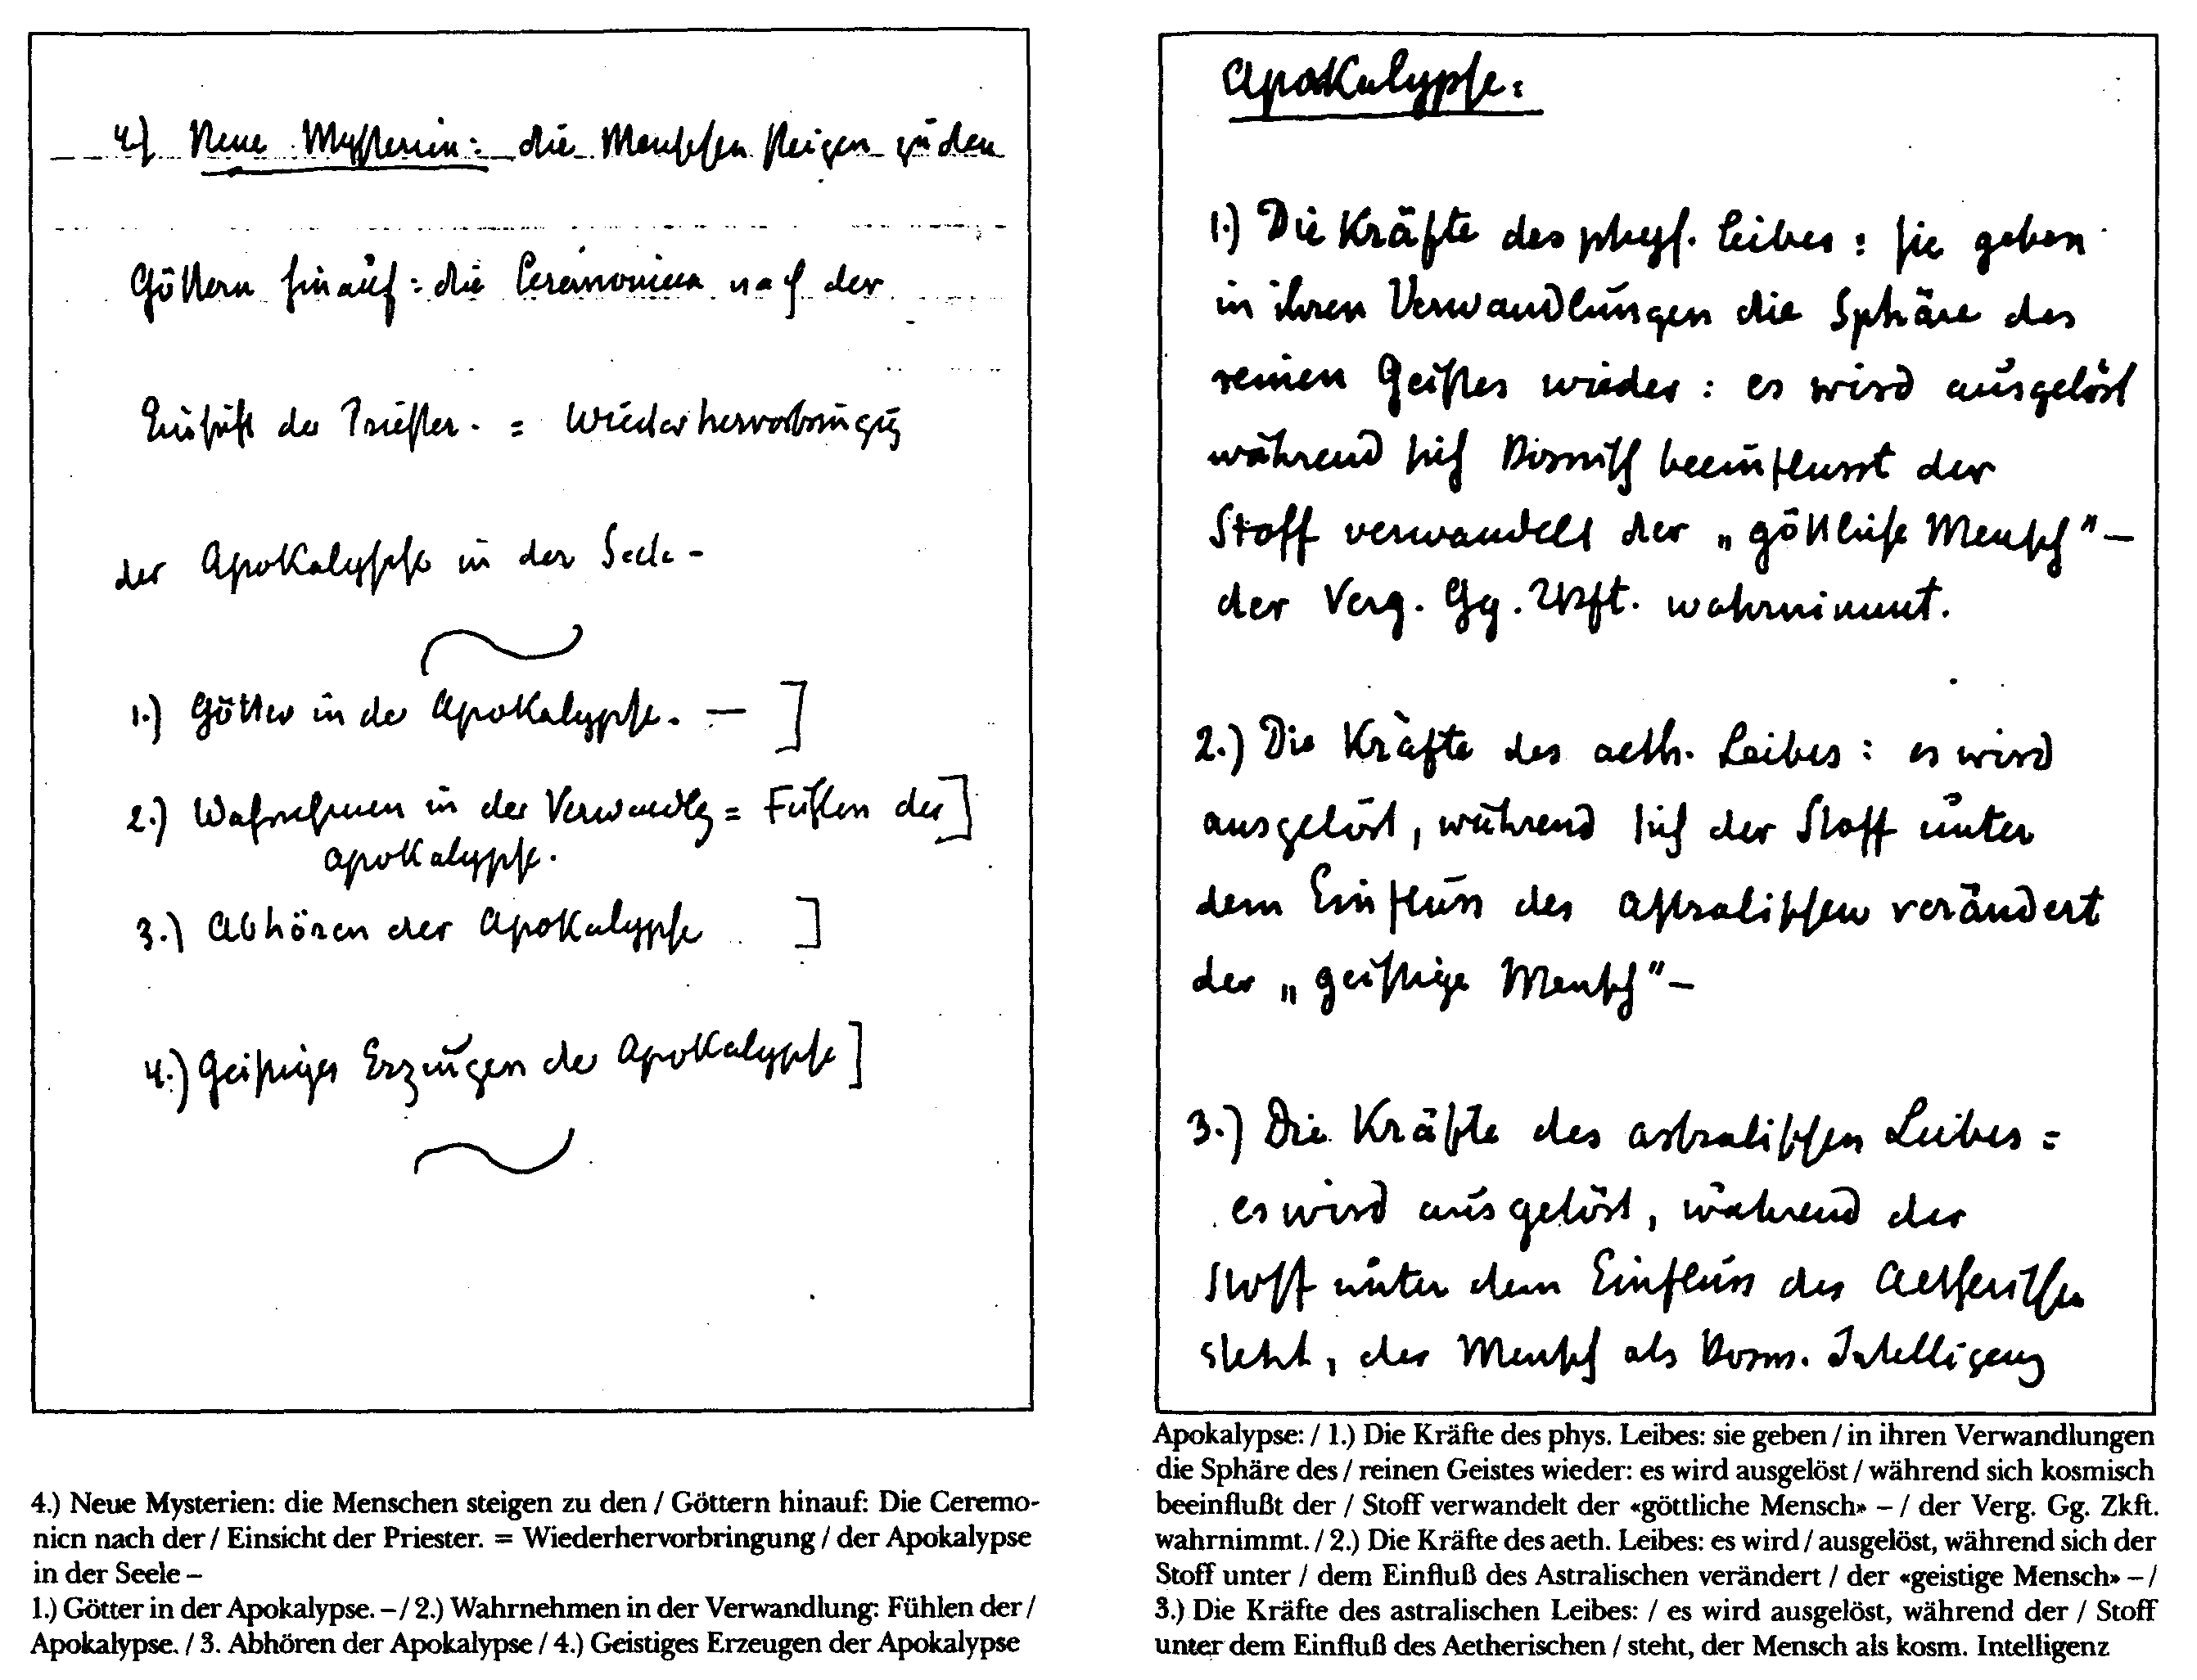 4.) Neue Mysterien: die Menschen steigen zu den
Göttern hinauf: die Ceremonien nach der
Einsicht der Priester. = Wiederhervorbringg
der Apokalypse in der Seele –
1.) Götter in der Apokalypse. — ]
2.) Wahrnehmen in der Verwandlg = Fühlen der ]
Apokalypse.
3.) Abhören der Apokalypse ]
4.) Geistiges Erzeugen der Apokalypse ]
4.) Neue Mysterien: die Menschen steigen zu den / Göttern hinauf: Die Ceremo-
nien nach der / Einsicht der Priester. = Wiederhervorbringung / der Apokalypse
in der Seele –
1.) Götter in der Apokalypse. – / 2.) Wahrnehmen in der Verwandlung: Fühlen der /
Apokalypse. / 3. Abhören der Apokalypse / 4.) Geistiges Erzeugen der Apokalypse
Apokalypse:
1.) Die Kräfte des phys. Leibes: sie geben
in ihren Verwandlungen die Sphäre des
reinen Geistes wieder: es wird ausgelöst
während sich kosmisch beeinflusst der
Stoff verwandelt der „göttliche Mensch" –
der Verg. Gg. Zkft. wahrnimmt.
2.) Die Kräfte des aeth. Leibes: es wird
ausgelöst, während sich der Stoff unter
dem Einfluss des Astralischen verändert
der „geistige Mensch" –
3.) Die Kräfte des astralischen Leibes =
es wird ausgelöst, während der
Stoff unter dem Einfluss des Aetherischen
steht, der Mensch als kosm. Intelligenz
Apokalypse: / 1.) Die Kräfte des phys. Leibes: sie geben / in ihren Verwandlungen
die Sphäre des / reinen Geistes wieder: es wird ausgelöst / während sich kosmisch
beeinflußt der / Stoff verwandelt der «göttliche Mensch» – / der Verg. Gg. Zkft.
wahrnimmt. / 2.) Die Kräfte des aeth. Leibes: es wird / ausgelöst, während sich der
Stoff unter / dem Einfluß des Astralischen verändert / der «geistige Mensch» – /
3.) Die Kräfte des astralischen Leibes: / es wird ausgelöst, während der / Stoff
unter dem Einfluß des Aetherischen / steht, der Mensch als kosm. Intelligenz